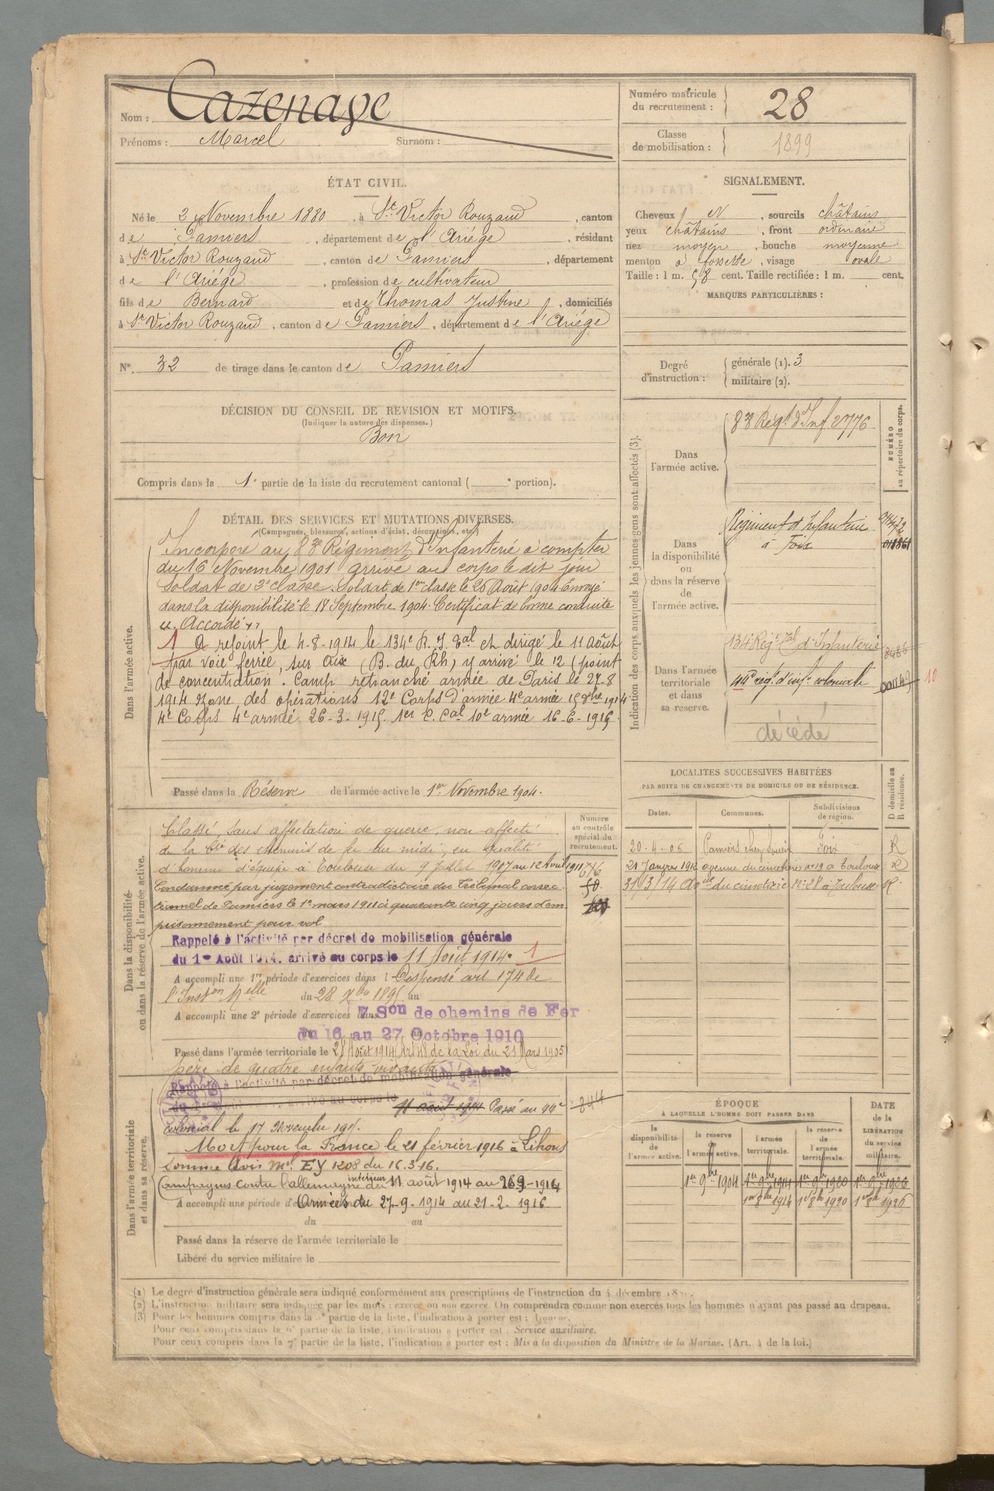 Nom : Cazenave
Prénoms : Marcel Surnom :
Numéro matricule du recrutement : 28
Classe de mobilisation : 1899
ÉTAT CIVIL.
Né le 2 Novembre 1880, à St Victor Rouzaud, canton
de Pamiers, département de l'Ariège, résidant
à St Victor Rouzaud, canton de Pamiers, département
de l'Ariège, profession de cultivateur
fils de Bernard et de Thomas Justine, domiciliés
à St Victor Rouzaud, canton de Pamiers, département de l'Ariège
N°. 32 de tirage dans le canton de Pamiers
SIGNALEMENT.
Cheveux N, sourcils châtains
yeux châtains, front ordinaire
nez moyen, bouche moyenne
menton à fossette, visage ovale
Taille : 1 m. 58 cent. Taille rectifiée : 1 m. cent.
MARQUES PARTICULIÈRES :
Degré d'instruction : générale (1). 3
militaire (2).
DÉCISION DU CONSEIL DE REVISION ET MOTIFS.
(Indiquer la nature des dispenses.)
Bon
Compris dans la 1e partie de la liste du recrutement cantonal ( e portion).
DÉTAIL DES SERVICES ET MUTATIONS DIVERSES.
(Campagnes, blessures, actions d'éclat, décorations, etc.)
Dans l'armée active.
Incorporé au 83e Régiment d'Infanterie à compter
du 16 Novembre 1901 arrivé au corps le dit jour
Soldat de 2e classe. Soldat de 1re classe le 20 Août 1904 Envoyé
dans la disponibilité le 18 Septembre 1904. Certificat de bonne conduite
"Accordé"
1 A rejoint le 4-8-1914 le 134e R. I. Tal et dirigé le 11 Août
par voie ferrée, sur Aix (B. du Rh) y arrivé le 12 (point
de concentration. Camp retranché armée de Paris le 27-8
1914 Zone des opérations 12e Corps d'armée 4e armée 15 8bre 1914
4e Corps 4e armée 26-3-1915. 1er C. Cal 10e armée 16-6-1915.
Passé dans la Réserve de l'armée active le 1er Novembre 1904.
Indication des corps auxquels les jeunes gens sont affectés (3).
NUMÉRO au répertoire du corps.
Dans l'armée active.
83e Régt d'Inf 2776
Dans la disponibilité ou dans la réserve de l'armée active.
Régiment d'Infanterie
à Foix
Dans l'armée territoriale et dans sa réserve.
134e Régt Tal d'Infanterie
44e régt d'inf. coloniale
10
décédé
LOCALITÉS SUCCESSIVES HABITÉES
PAR SUITE DE CHANGEMENTS DE DOMICILE OU DE RÉSIDENCE.
Dates. Communes. Subdivisions de région. D domicile ou R résidence.
20-4-06 Pamiers Foix R
21 Janvier 1912 avenue du cimetière n° 19 à Toulouse R
31/3/14 du cimetière à Toulouse R
Dans la disponibilité ou dans la réserve de l'armée active.
Numéro au contrôle spécial du recrutement.
Classé, sans affectation de guerre, non affecté
de la Cie des chemins de fer du midi, en qualité
d'homme d'équipe à Toulouse du 9 Juillet 1907 au 12 Avril 1911
Condamné par jugement contradictoire du Tribunal correc
tionnel de Pamiers le 1er mars 1911 à quarante cinq jours d'em
prisonnement pour vol
Rappelé à l'activité par décret de mobilisation générale
du 1er Août 1914, arrivé au corps le 11 Août 1914. 1
A accompli une 1re période d'exercices dans l Dispensé art 174 de
l'Inston Melle du 28 Xbre 1895 au
A accompli une 2e période d'exercices dans 7 Son de chemins de Fer
du 16 au 27 Octobre 1910
Passé dans l'armée territoriale le 28 Août 1914 Art 48 de la Loi du 21 Mars 1905
père de quatre enfants vivants
Dans l'armée territoriale et dans sa réserve.
Rappelé à l'activité par décret de mobilisation générale
arrivé au corps le 11 août 1914 Passé au 44e
colonial le 17 Novembre
Mort pour la France le 21 février 1916 à Lihons
Somme Avis Mel EY 1208 du 16.3.16.
Campagnes contre l'allemagne intérieur du 11 août 1914 au 26-9-1914
A accompli une période d' Armées du 27-9-1914 au 21-2-1916
du au
Passé dans la réserve de l'armée territoriale le
Libéré du service militaire le
ÉPOQUE
À LAQUELLE L'HOMME DOIT PASSER DANS
la disponibilité de l'armée active. la réserve de l'armée active. l'armée territoriale. la réserve de l'armée territoriale.
DATE de la LIBÉRATION du service militaire.
1er 9bre 1904 1er 9bre 1911 1er 9bre 1920 1er 9bre 1926
1er 8bre 1914 1er 8bre 1920 1er 8bre 1926
(1) Le degré d'instruction générale sera indiqué conformément aux prescriptions de l'instruction du 4 décembre
(2) L'instruction militaire sera indiquée par les mots : exercé ou non exercé. On comprendra comme non exercés tous les hommes n'ayant pas passé au drapeau.
(3) Pour les hommes compris dans la partie de la liste, l'indication à porter est :
Pour ceux compris dans la 6e partie de la liste, l'indication à porter est : Service auxiliaire.
Pour ceux compris dans la 7e partie de la liste, l'indication à porter est : Mis à la disposition du Ministre de la Marine. (Art. 4 de la loi.)